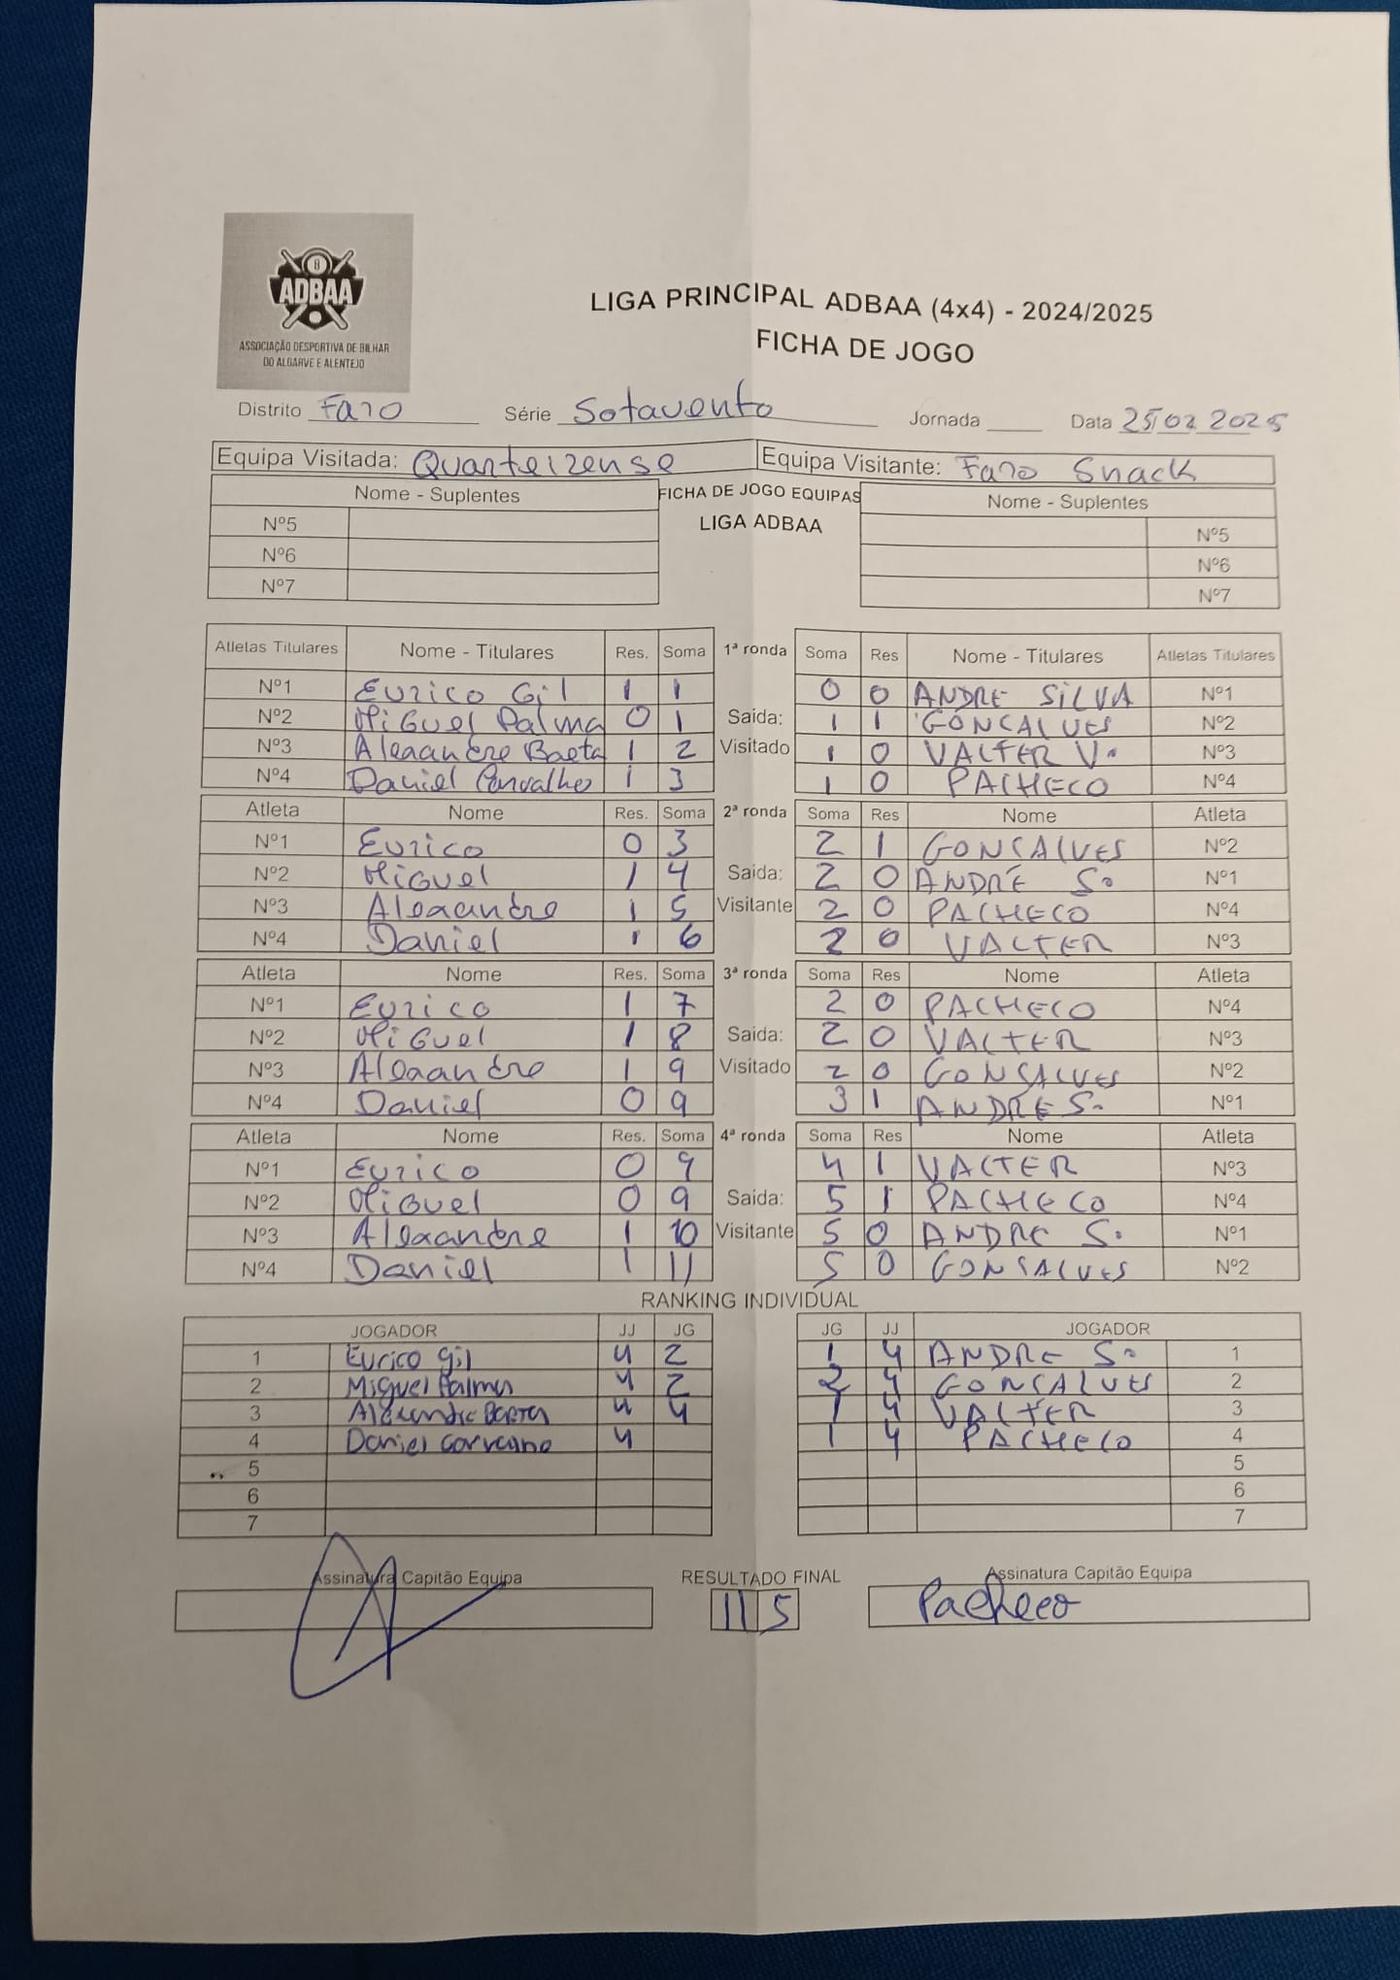 ADBAA
ASSOCIAÇÃO DESPORTIVA DE BILHAR
DO ALGARVE E ALENTEJO
LIGA PRINCIPAL ADBAA (4x4) - 2024/2025
FICHA DE JOGO
Distrito Faro Série Sotavento Jornada ____ Data 25/02 2025
Equipa Visitada: Quarteirense Equipa Visitante: Faro Snack
Nome - Suplentes FICHA DE JOGO EQUIPAS Nome - Suplentes
LIGA ADBAA
Nº5 Nº5
Nº6 Nº6
Nº7 Nº7
Atletas Titulares Nome - Titulares Res. Soma 1ª ronda Soma Res Nome - Titulares Atletas Titulares
Nº1 Eurico Gil 1 1 0 0 ANDRE SILVA Nº1
Nº2 Miguel Palma 0 1 Saida: 1 1 GONCALVES Nº2
Nº3 Alexandre Baeta 1 2 Visitado 1 0 VALTER V. Nº3
Nº4 Daniel Carvalho 1 3 1 0 PACHECO Nº4
Atleta Nome Res. Soma 2ª ronda Soma Res Nome Atleta
Nº1 Eurico 0 3 2 1 GONCALVES Nº2
Nº2 Miguel 1 4 Saida: 2 0 ANDRÉ S. Nº1
Nº3 Alexandre 1 5 Visitante 2 0 PACHECO Nº4
Nº4 Daniel 1 6 2 0 VALTER Nº3
Atleta Nome Res. Soma 3ª ronda Soma Res Nome Atleta
Nº1 Eurico 1 7 2 0 PACHECO Nº4
Nº2 Miguel 1 8 Saida: 2 0 VALTER Nº3
Nº3 Alexandre 1 9 Visitado 2 0 GONSALVES Nº2
Nº4 Daniel 0 9 3 1 ANDRE S. Nº1
Atleta Nome Res. Soma 4ª ronda Soma Res Nome Atleta
Nº1 Eurico 0 9 4 1 VALTER Nº3
Nº2 Miguel 0 9 Saida: 5 1 PACHECO Nº4
Nº3 Alexandre 1 10 Visitante 5 0 ANDRE S. Nº1
Nº4 Daniel 1 11 5 0 GONSALVES Nº2
RANKING INDIVIDUAL
JOGADOR JJ JG JG JJ JOGADOR
1 Eurico gil 4 2 1 4 ANDRE S. 1
2 Miguel Palma 4 2 2 4 GONCALVES 2
3 Alexandre BAETA 4 4 1 4 VALTER 3
4 Daniel 4 1 4 PACHECO 4
5 5
6 6
7 7
Assinatura Capitão Equipa RESULTADO FINAL Assinatura Capitão Equipa
11 5 Pacheco